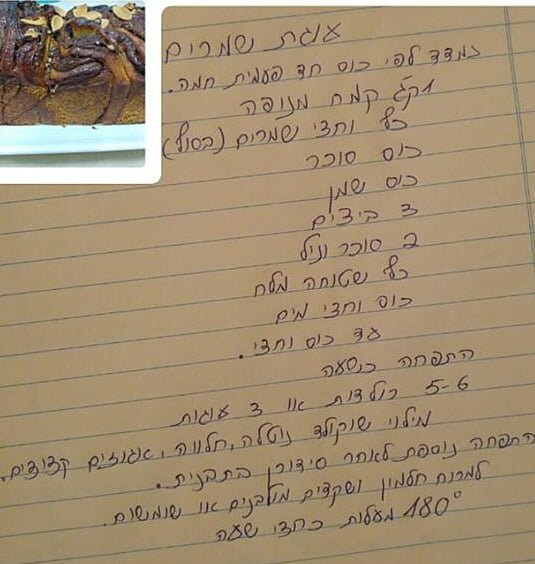 עוגת שמרים
נמדד לפי כוס חד פעמית חמה.
1 קג קמח מנופה
כף וחצי שמרים (בסוף)
כוס סוכר
כוס שמן
3 ביצים
2 סוכר וניל
כף שטוחה מלח
כוס וחצי מים
עד כוס וחצי.
התפחה כשעה
5-6 רולדות או 3 עוגות
מילוי שוקולד נוטלה, חלווה, אגוזים קצוצים.
התפחה נוספת לאחר סידורן בתבנית.
למרוח חלמון ושקדים מולבנים או שומשום.
180° מעלות כחצי שעה